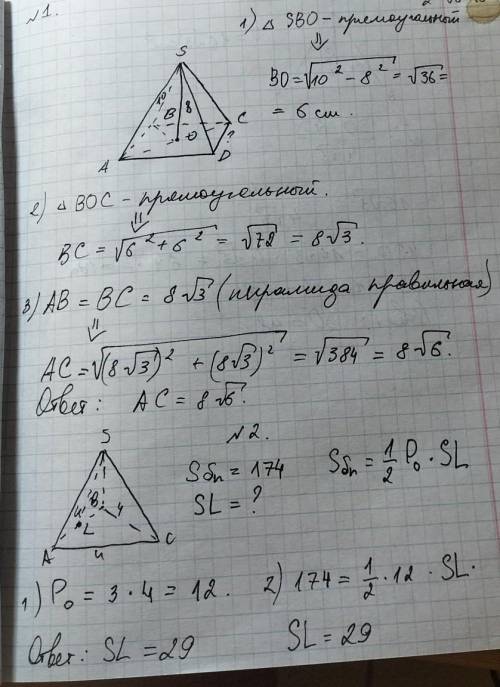 №1.
1) △ SBO - прямоугольный
⇓
BO = √10² - 8² = √36 =
= 6 см.
S
10
8
B
C
?
O
A
D
2) △ BOC - прямоугольный.
⇓
BC = √6² + 6² = √72 = 8√3.
3) AB = BC = 8√3 (пирамида правильная)
⇓
AC = √(8√3)² + (8√3)² = √384 = 8√6.
Ответ: AC = 8√6.
№2.
S
Sбп = 174
Sбп = 1/2 P₀ · SL
SL = ?
B
4
4
L
A
4
C
1) P₀ = 3 · 4 = 12.
2) 174 = 1/2 · 12 · SL.
SL = 29
Ответ: SL = 29